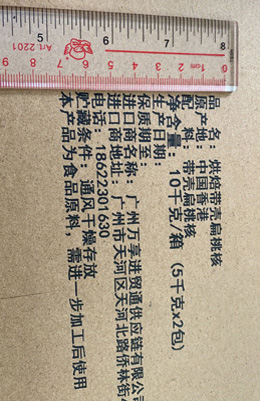 5 6 7 8
Art.2201
9 8 7 6 5 4 3 2 1cm 0
品名：烘焙带壳扁桃核
原产地：中国香港
配料：带壳扁桃核
净含量：10千克/箱 （5千克x2包）
生产日期：
保质期至：
进口商名称：广州万享进贸通供应链有限公司
进口商地址：广州市天河区天河北路侨林街4
电话：18622301630
贮藏条件：通风干燥存放
本产品为食品原料，需进一步加工后使用